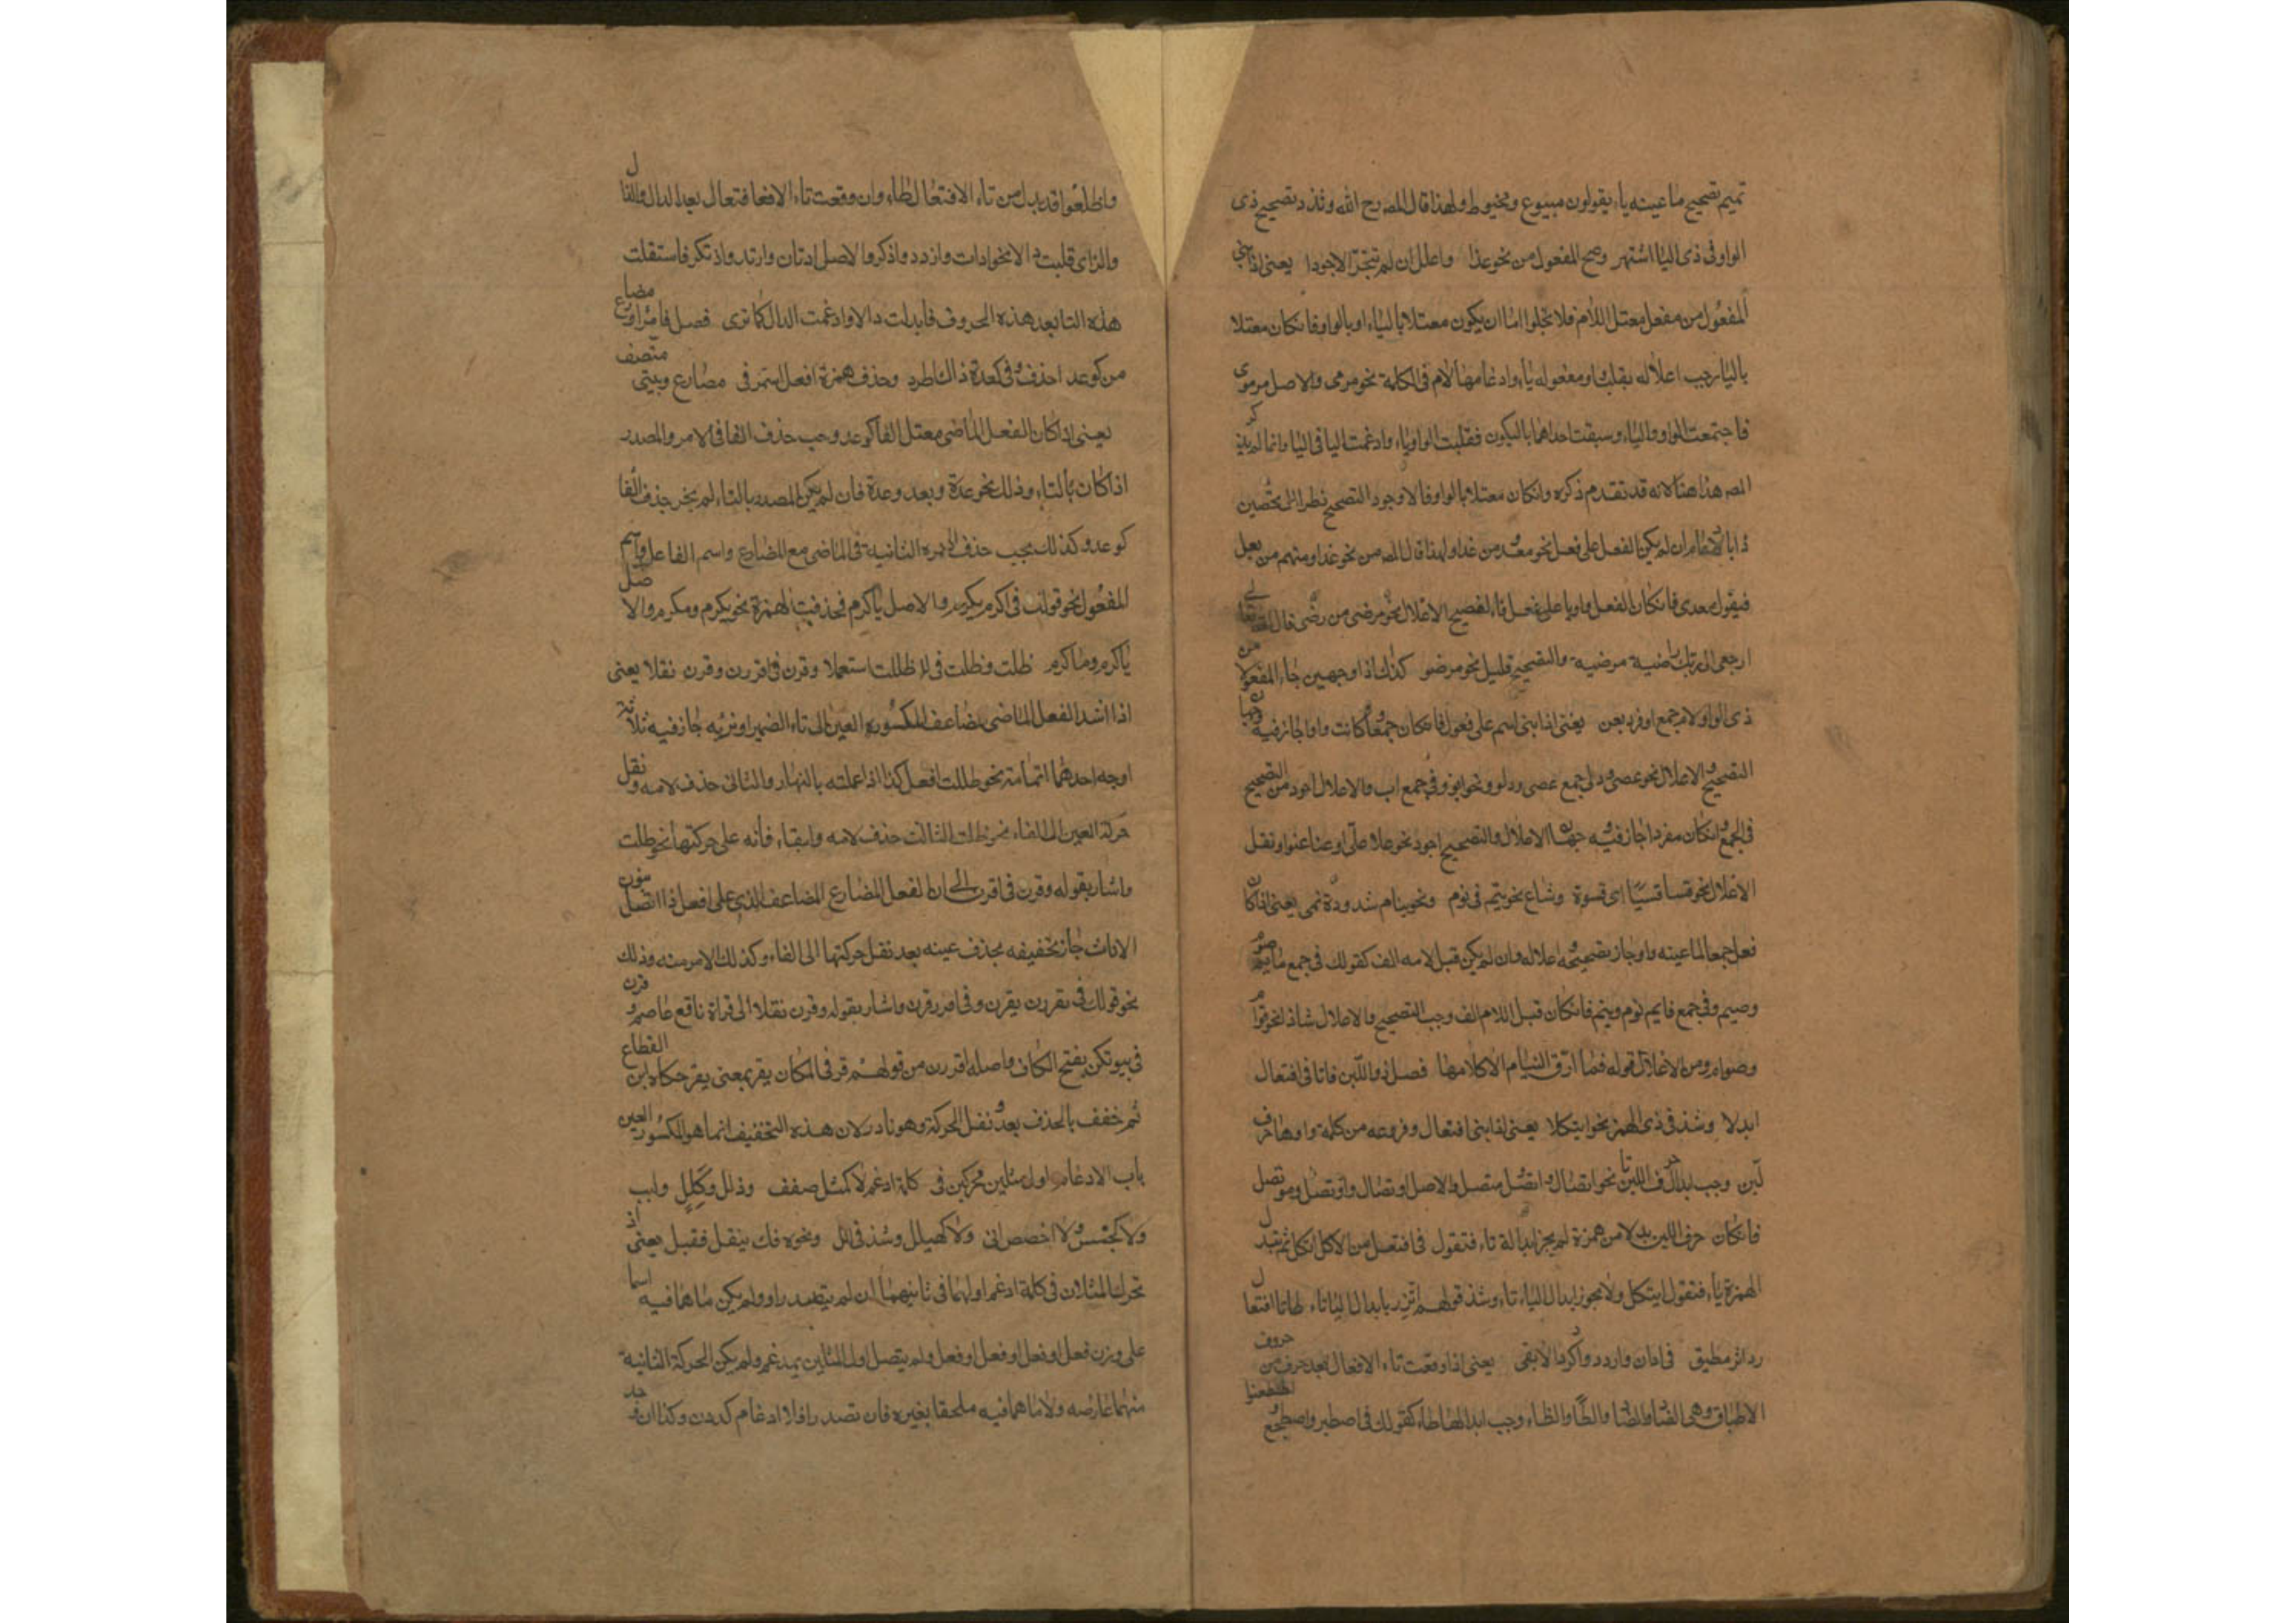 تميم تصحيح ما عينه ياء يقولون مبيوع ومخيوط ولهذا قال المصـ رح الله وندد تصحيح ذى
الواو فى ذى اليا اشتهر وصح المفعول من نحو عدا واعلل ان لم تتحر الاجودا يعنى اذا بنى
المفعول من مفعل معتل اللام فلا يخلوا اما ان يكون معتلا بالياء او بالواو فان كان معتلا
باليا وجب اعلاله بقلب واو مفعوله ياء وادغامها لام فى الكلمة نحو مرمى والاصل مرموى
فاجتمعت الواو والياء وسبقت احداهما بالسكون فقلبت الواو ياء وادغمت اليا فى اليا وانما لم يذكر
المصـ هذا هنا لانه قد تقدم ذكره وان كان معتلا بالواو فالاجود التصحيح نظرا الى
ان لم يكن الفعل على فعل نحو معدو من عدا ولهذا قال المصـ من نحو عدا ومنهم من يعل
فيقول معدى فان كان الفعل واويا على فعل فالفصيح الاعلال نحو مرضى من رضى قال الله تعالى
ارجعى الى ربك راضية مرضية والتصحيح قليل نحو مرضو كذاك ذا وجهين جاء المفعول من
ذى الواو لام جمع او فرد يعن يعنى اذا بنى اسم على فعول فان كان جمعا وكانت واوا جاز فيه وجهان
التصحيح والاعلال نحو عصى ودلى جمع عصى ودلو ونحو ابو وفى جمع اب والاعلال اجود من التصحيح
فى الجمع وان كان مفردا جاز فيه وجهان الاعلال والتصحيح اجود نحو علا علوا وعتا عتوا وتقل
الاعلال نحو قسا قسيا اى قسوة وشاع نحو نيم فى نوم ونحو نيام شذوذه نمى يعنى اذا كان
فعل جمعا لما عينه واو جاز تصحيحه واعلاله وان لم يكن قبل لامه الف كقولك فى جمع صايم صوم
وصيم وفى جمع نايم نوم ونيم فان كان قبل اللام الف وجب التصحيح والاعلال شاذ نحو قوام
وصوام ومن الاعلال قوله فما ارق النيام الا كلامها فصل ذو اللين فاتا فى افتعال
ابدلا وشذ فى ذى الهمز نحو ايتكلا يعنى اذا بنى افتعال وفروعه من كلمة واوها حرف
لين وجب ابدال حرف اللين تا نحو اتصال واتصل متصل والاصل اوتصال واوتصل وموتصل
فان كان حرف اللين بدلا من همزة لم يجز ابداله تاء فتقول فى افتعل من الاكل ائتكل ثم تبدل
الهمزة ياء فتقول ايتكل ولا يجوز ابدال الياء تاء وشذ قولهم اتزر بابدال الياء تاء طا تا افتعال
رد اثر مطبق فى ادان وازدد وادكر دالا بقى يعنى اذا وقعت تاء الافتعال بعد حرف من حروف
الاطباق وهى الصاد والضاد والطاء والظاء وجب ابدالها طاء كقولك فى اصطبر واضطجع
واطلعوا قد يبدل من تاء الافتعال طاء وان وقعت تاء الافتعال بعد الدال والذال
والزاى قلبت دالا نحو ادان وازدد واذكر والاصل ادتان وازتد واذتكر فاستثقلت
هذه التا بعد هذه الحروف فابدلت دالا وادغمت الدال كما ترى فصل فا مر او مضارع
من كوعد احذف وفى كعدة ذاك اطرد وحذف همزة افعل استمر فى مضارع وبنيتى متصف
يعنى اذا كان الفعل الماضى معتل الفا كوعد وجب حذف الفا فى الامر والمصدر
اذا كان بالتاء وذلك نحو عدة ويعد وعدة فان لم يكن المصدر بالتاء لم يجز حذف الفا
كوعد وكذلك يجب حذف الهمزة الثانية فى الماضى مع المضارع واسم الفاعل واسم
المفعول نحو قولك فى اكرم يكرم والاصل يأكرم فحذفت الهمزة نحو يكرم ومكرم والاصل
يأكرم ومأكرم ظلت وظلت فى ظللت استعملا وقرن فى اقررن وقرن نقلا يعنى
اذا اسند الفعل الماضى المضاعف المكسورة العين الى تاء الضمير او نونه جاز فيه ثلاثة
اوجه احدهما اتمامه نحو ظللت افعل كذا اذا عملته بالنهار والثانى حذف لامه ونقل
حركة العين الى الفاء نحو ظلت الثالث حذف لامه وابقاء فائه على حركتها نحو ظلت
واشار بقوله وقرن فى اقررن الى ان الفعل المضارع المضاعف الذى على افعل اذا اتصل بنون
الاناث جاز تخفيفه بحذف عينه بعد نقل حركتها الى الفاء وكذلك الامر منه وذلك
نحو قولك فى يقررن يقرن وفى اقررن قرن واشار بقوله وقرن نقلا الى قراة نافع عاصم وقرن
فى بيوتكن بفتح الكاف واصله اقررن من قولهم قر فى المكان يقر بمعنى يقر حكاه ابن القطاع
ثم خفف بالحذف بعد نقل الحركة وهو نادر لان هذه التخفيف انما هو المكسور العين
باب الادغام اول مثلين محركين فى كلمة ادغم لا كمثل صفف وذلل وكلل ولبب
ولا كجسس ولا اخصص ابى ولا كهيلل وشذ فى الل ونحوه فك بنقل فقبل يعنى اذ
تحرك المثلان فى كلمة ادغم اولهما فى ثانيهما ان لم يتصدرا ولم يكن ما هما فيه اسما
على وزن فعل او فعل او فعل او فعل ولم يتصل اول المثلين بمدغم ولم يكن الحركة الثانية
منهما عارضه ولا ما هما فيه ملحقا بغيره فان تصدرا فلا ادغام كددن وكذا ان وجد